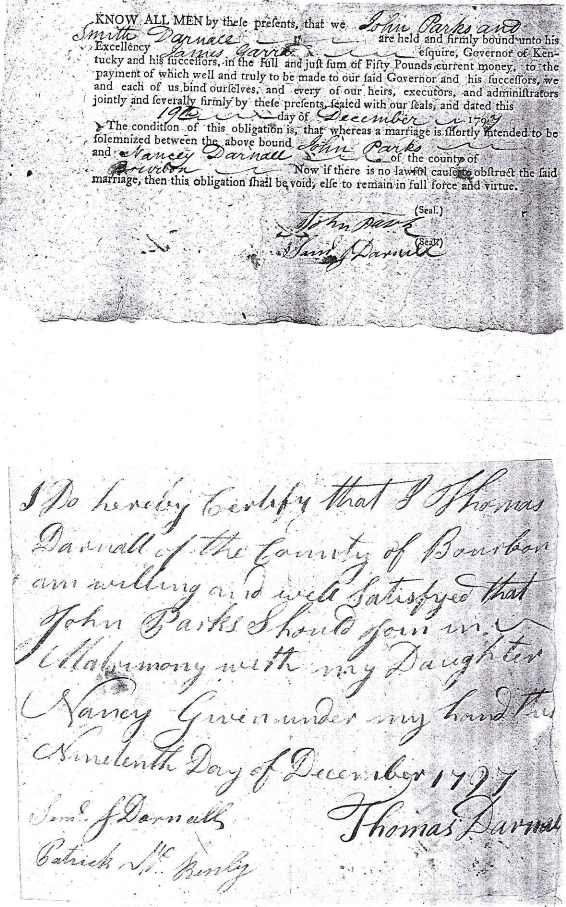 KNOW ALL MEN by these presents, that we John Parks and
Smith Darnall are held and firmly bound unto his
Excellency James Garrard esquire, Governor of Ken-
tucky and his successors, in the full and just sum of Fifty Pounds current money, to the
payment of which well and truly to be made to our said Governor and his successors, we
and each of us bind ourselves, and every of our heirs, executors, and administrators
jointly and severally firmly by these presents, sealed with our seals, and dated this
19th day of December 1797
The condition of this obligation is, that whereas a marriage is shortly intended to be
solemnized between the above bound John Parks
and Nancey Darnall of the county of
Bourbon Now if there is no lawful cause to obstruct the said
marriage, then this obligation shall be void, else to remain in full force and virtue.
(Seal.)
John Park
(Seal)
Saml. S Darnall
I Do hereby Certify that I Thomas
Darnall of the County of Bourbon
am willing and well Satisfyed that
John Parks Should Join in
Matrimony with my Daughter
Nancy Given under my hand this
Nineteenth Day of December 1797
Saml. S Darnall
Thomas Darnall
Patrick